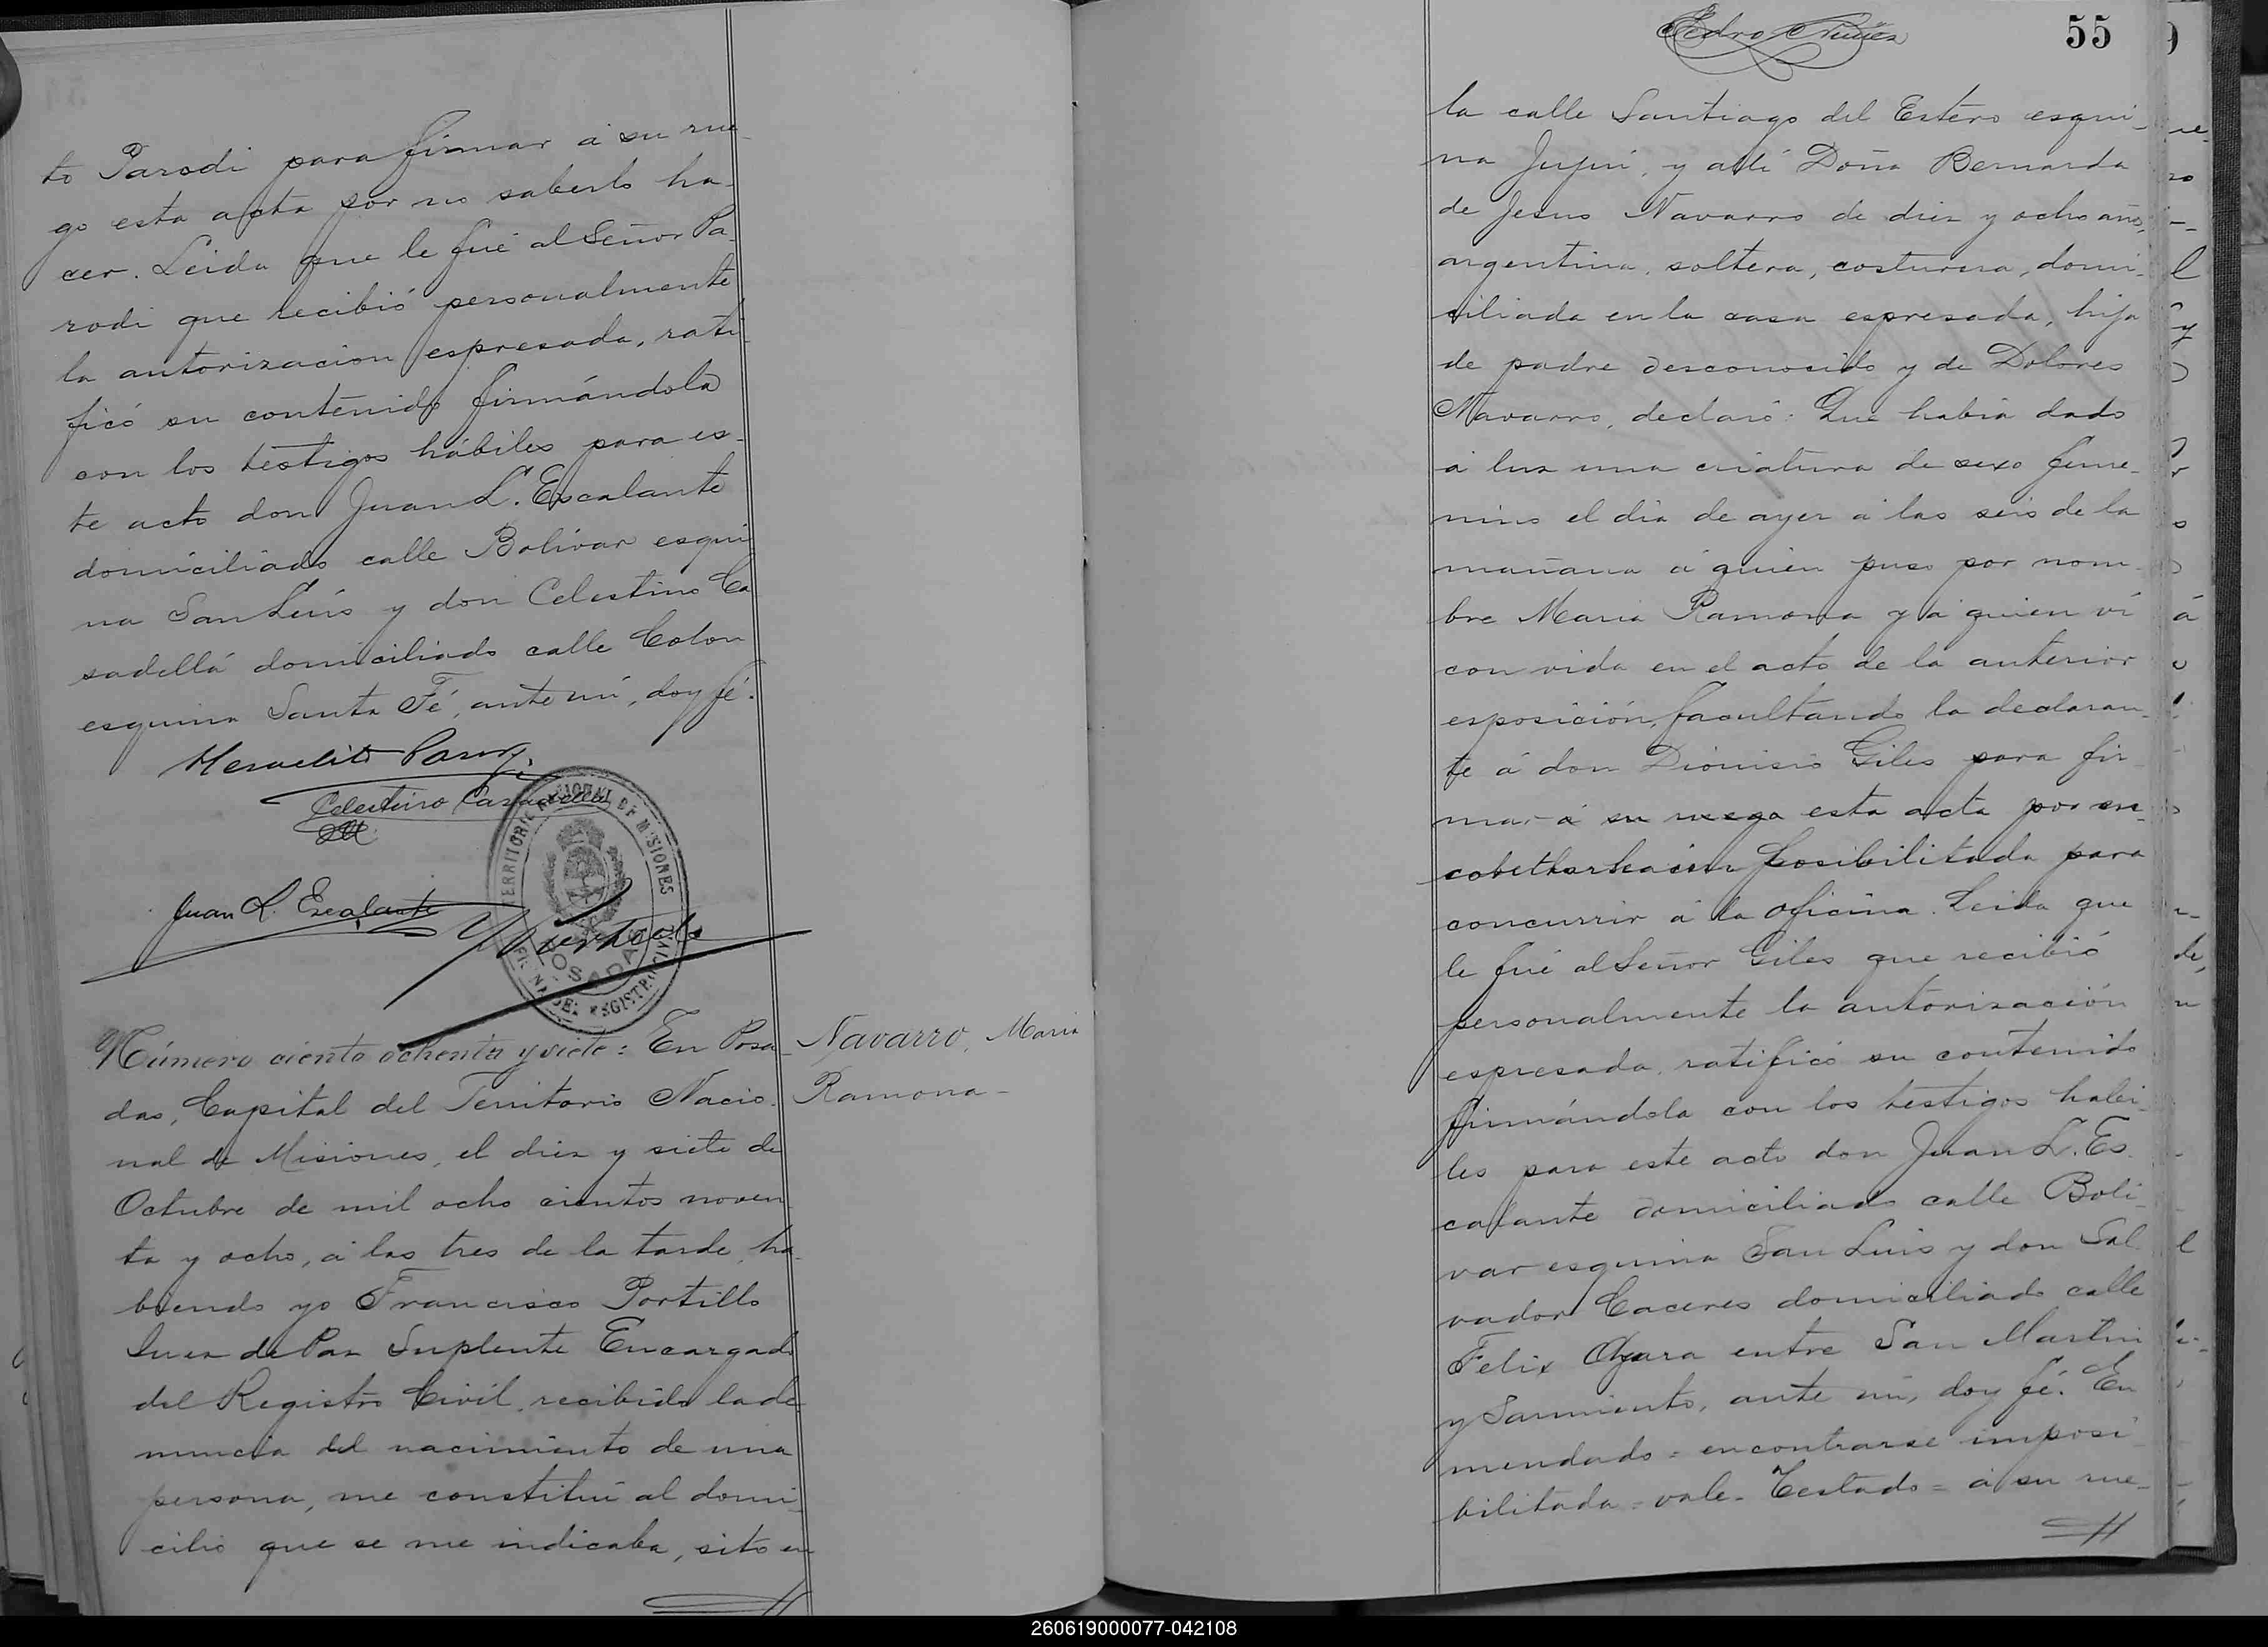 to Parodi para firmar á su rue-
go esta acta por no saberlo ha-
cer. Leida que le fué al Señor Pa-
rodi que recibió personalmente
la autorizacion espresada, rati-
ficó su contenido firmándola
con los testigos hábiles para es-
te acto don Juan L. Escalante
domiciliado calle Bolívar esqui-
na San Luis y don Celestino Ca
sadellá domiciliado calle Colon
esquina Santa Fé, ante mi, doy fé.
Celestino Casadella
Juan L. Escalante
TERRITORIO NACIONAL DE MISIONES
POSADAS
OFICINA DEL REGISTRO CIVIL
Número ciento ochenta y siete: En Posa-
das, Capital del Territorio Nacio-
nal de Misiones, el diez y siete de
Octubre de mil ocho cientos noven
ta y ocho, á las tres de la tarde, ha-
biendo yo Francisco Portillo
Juez de Paz Suplente Encargado
del Registro Civil, recibido la de
nuncia del nacimiento de una
persona, me constituí al domi-
cilio que se me indicaba, sito en
Navarro, Maria
Ramona-
Pedro Nuñez
55
la calle Santiago del Estero esqui-
na Jujui, y allí Doña Bernarda
de Jesus Navarro de diez y ocho años,
argentina, soltera, costurera, domi-
ciliada en la casa espresada, hija
de padre desconocido y de Dolores
Navarro, declaró: Que habia dado
á luz una criatura de sexo feme-
nino el dia de ayer á las seis de la
mañana á quien puso por nom-
bre Maria Ramona y á quien ví
con vida en el acto de la anterior
esposición, facultando la declaran-
te á don Dionisio Giles para fir
mar á su ruego esta acta por en-
posibilitada para
concurrir á la oficina. Leida que
le fué al Señor Giles que recibió
personalmente la autorización
espresada, ratificó su contenido
firmándola con los testigos habi-
les para este acto don Juan L. Es-
calante domiciliado calle Boli-
var esquina San Luis y don Sal-
vador Caceres domiciliado calle
Felix Azara entre San Martin
y Sarmiento, ante mi, doy fé. En
mendado = encontrarse imposi-
bilitada = vale. Testado = á su rue-
260619000077-042108